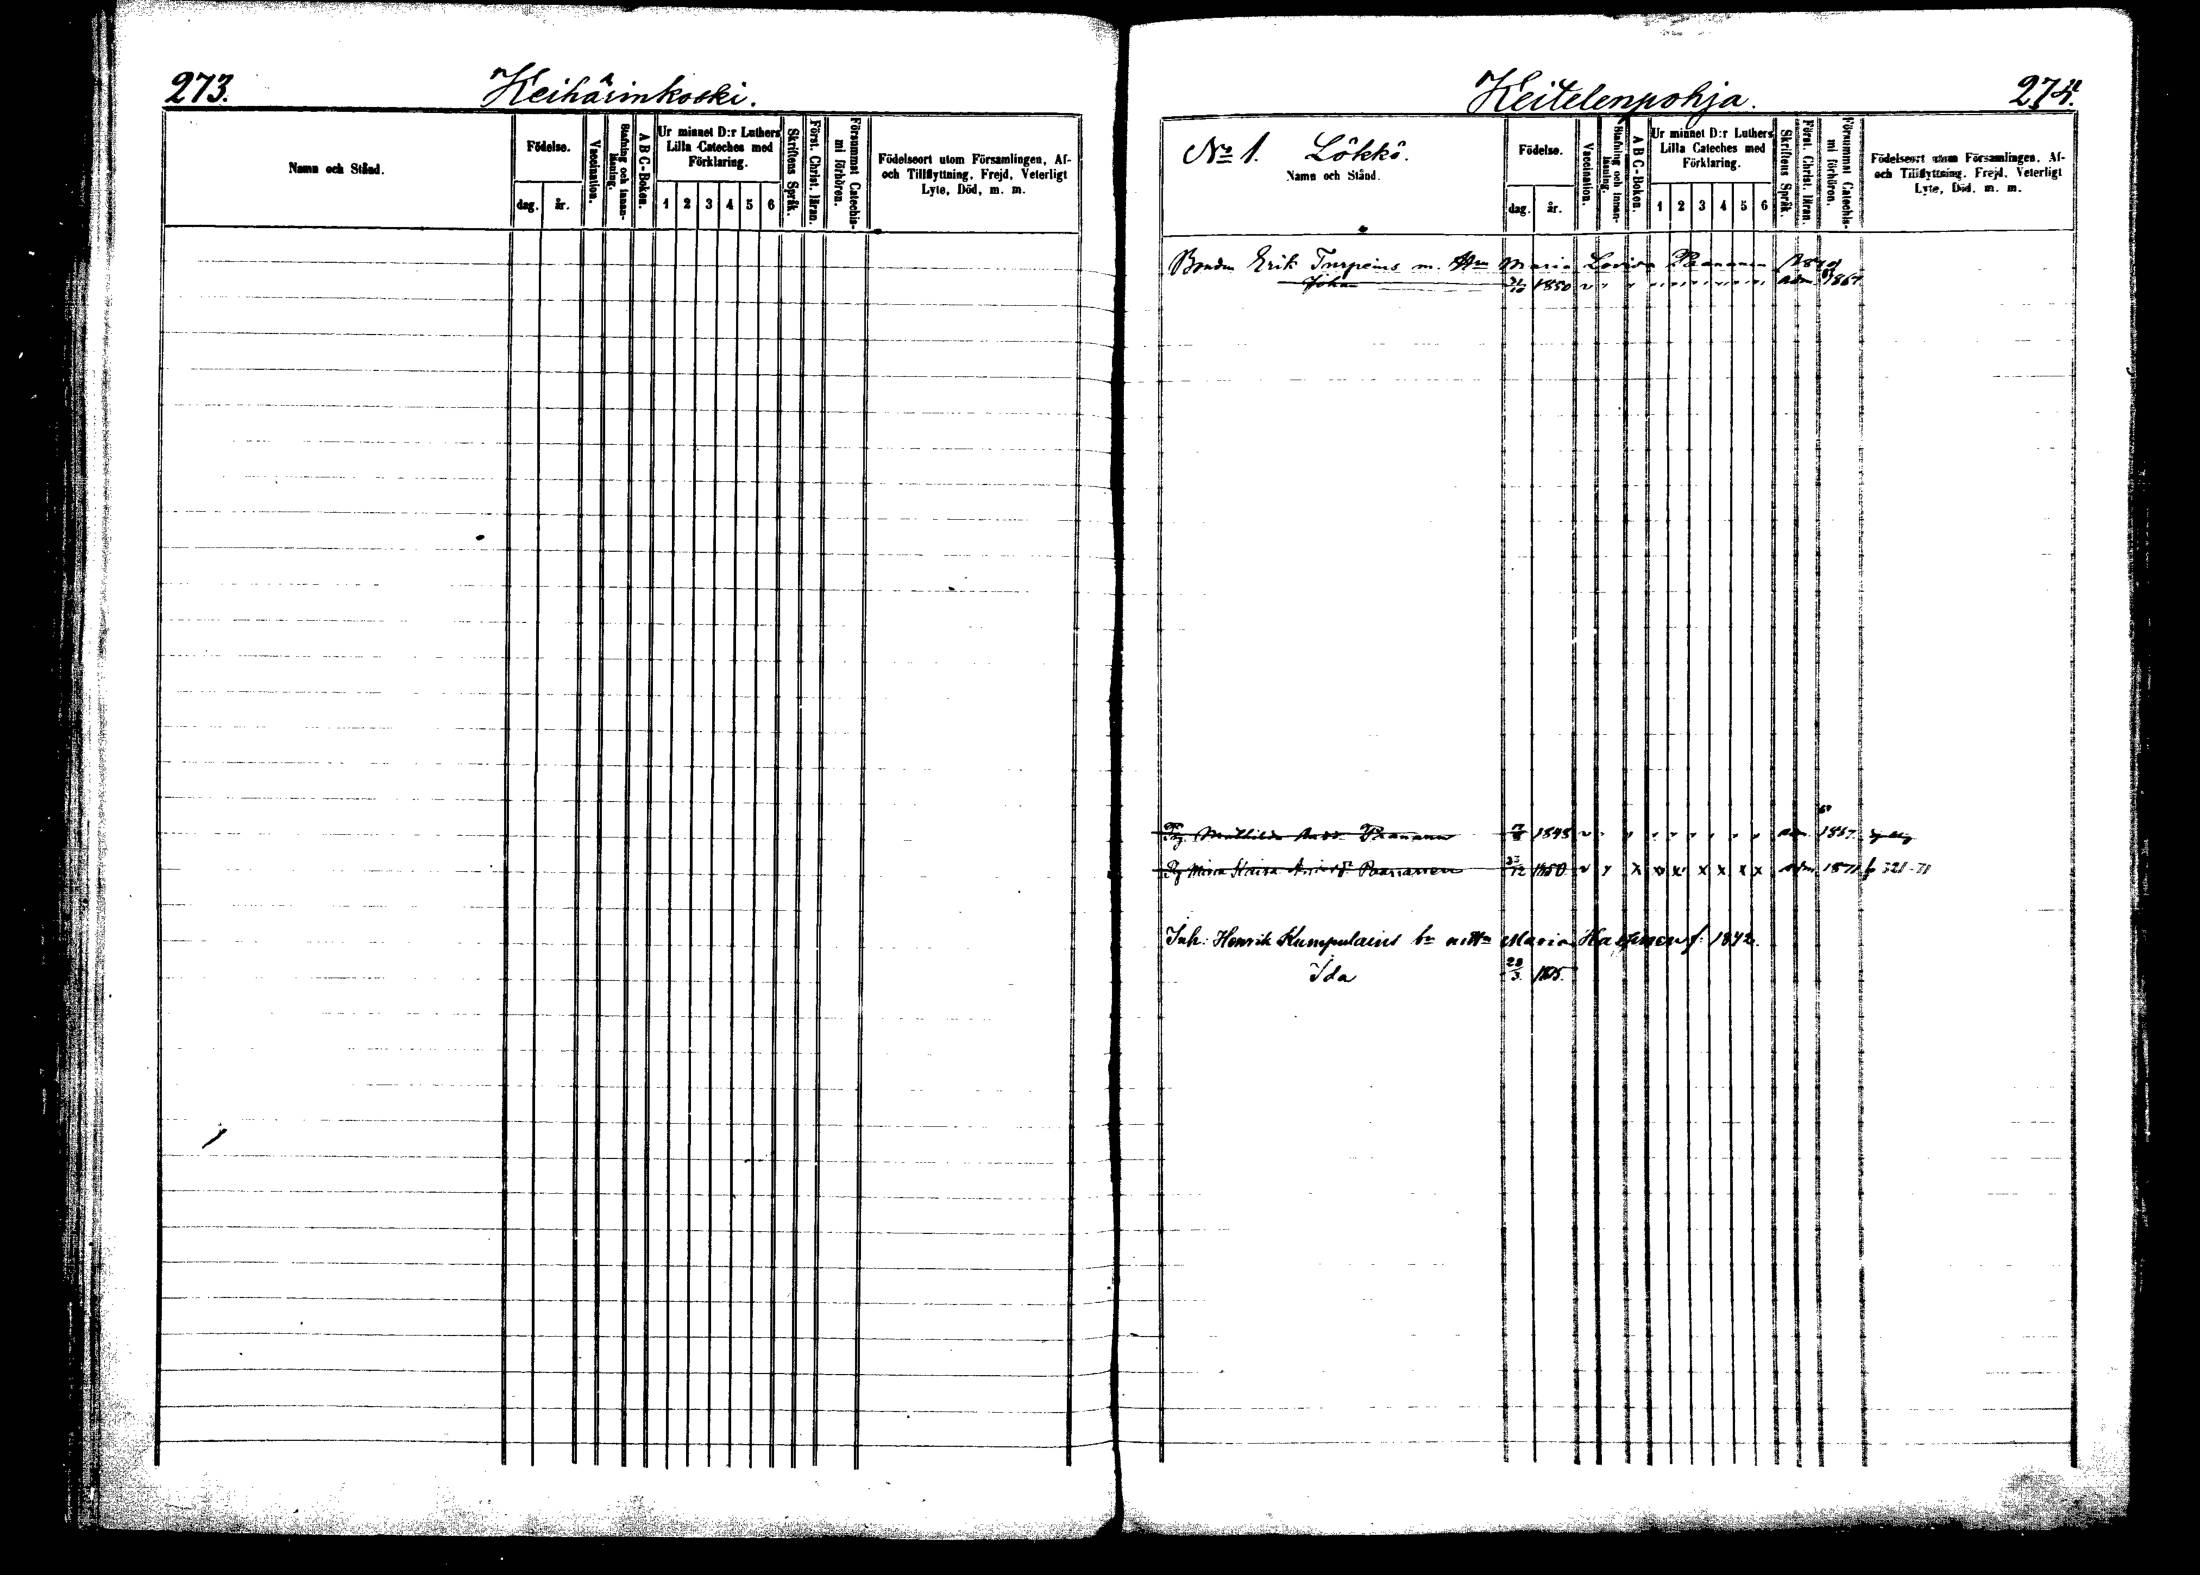 273.
Keihärinkoski.
Namn och Stånd.
Födelse.
dag.
år.
Vaccination.
Stafning och innan-läsning.
A B C-Boken.
Ur minnet D:r Luthers
Lilla Cateches med
Förklaring.
1 2 3 4 5 6
Skriftens Språk.
Först. Christ. läran.
Försummat Catechis-
mi förhören.
Födelseort utom Församlingen, Af-
och Tillflyttning, Frejd, Veterligt
Lyte, Död, m. m.
Keitelenpohja.
274.
No 1. Lökkö.
Namn och Stånd.
Födelse.
dag.
år.
Vaccination.
Stafning och innan-
läsning.
A B C-Boken.
Ur minnet D:r Luthers
Lilla Cateches med
Förklaring.
1 2 3 4 5 6
Skriftens Språk.
Först. Christ. läran.
Försummat Catechis-
mi förhören.
Födelseort utom Församlingen, Af-
och Tillflyttning, Frejd, Veterligt
Lyte, Död, m. m.
Bonden Erik Turpeins m. Maria Lovisa Paananen
Johan 1850 adm 1867
Mathilda Paananen 1848 adm 1867
Pig Maria Kaisa Paananen 23/12 1850 v x x x x x x x adm 1871
Inh: Henrik Kumpulains Maria f. 1842.
Ida 28/3